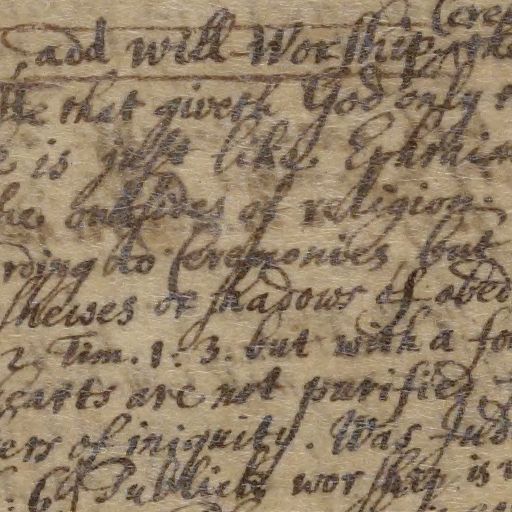 Cere
add will Worship, the
He that giveth God only t
e is just like Ephraim
he outsides of religion.
rding to Ceremonies, but
shewes or shadows of obed
2 Tim. 1. 3. but with a fo
hearts are not purified
ers of iniquity. Was Jud
Publick worship is